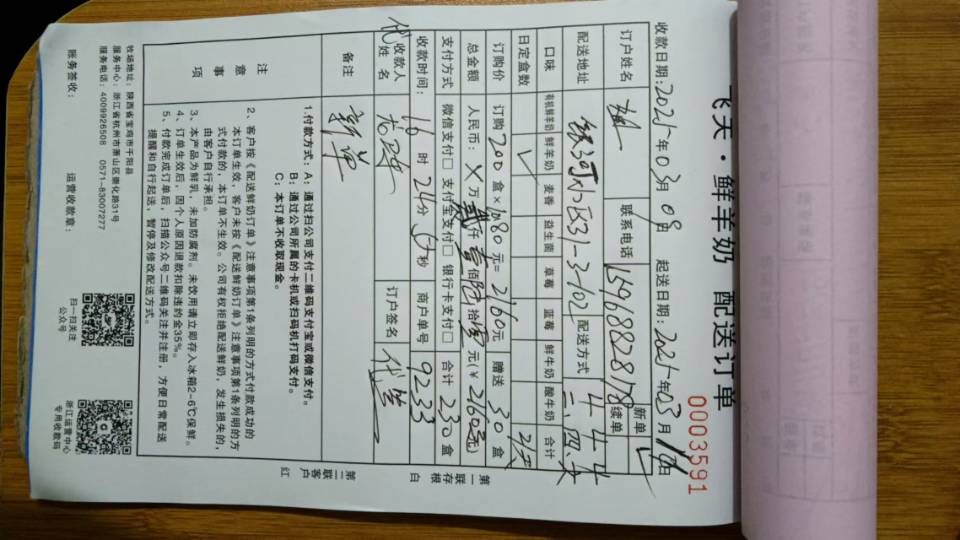 飞天·鲜羊奶 配送订单
0003591
收款日期:2021年03月09日 起送日期:2021年03月
订户姓名 联系电话 15968828178 新单 ✓ 续单
配送地址 银河小区31-3-102 配送方式
口味 有机鲜羊奶 鲜羊奶 麦香 益生菌 草莓 蓝莓 鲜牛奶 酸牛奶 合计
日定盒数 ✓
订购价 订购200盒×10.80元=2160元 赠送30盒
总金额 人民币:X万贰仟壹佰陆拾零元(¥2160元)
支付方式 微信支付□ 支付宝支付□ 银行卡支付□ 合计230盒
收款时间: 16时24分 秒 商户单号 9233
收款人姓名 订户签名 代签
备注 新单
注意事项
1.付款方式: A: 通过扫公司支付二维码支付宝或微信支付。
B: 通过公司所属的卡机或扫码机打码支付。
C: 本订单不收取现金。
2、客户按《配送鲜奶订单》注意事项第1条列明的方式付款成功的
本订单生效,客户未按《配送鲜奶订单》注意事项第1条列明的方
式付款的,本订单不生效。公司有权拒绝配送鲜奶,发生损失的,
由客户自行承担。
3、本产品为鲜乳,未加防腐剂。未饮用请立即存入冰箱2-6℃保鲜。
4、订单生效后,因个人原因退款扣除违约金35%。
5、付款完成订单后,扫描公众号二维码关注并注册,方便日常配送
提醒和自行起送,暂停及修改配送方式。
牧场地址: 陕西省宝鸡市千阳县
服务中心: 浙江省杭州市萧山区崇化路31号
服务电话: 4009926508 0571-83007277
扫一扫关注
公众号
浙江运营中心
专用收款码
账务签收: 运营收款章:
第一联存根 白
第二联客户 红